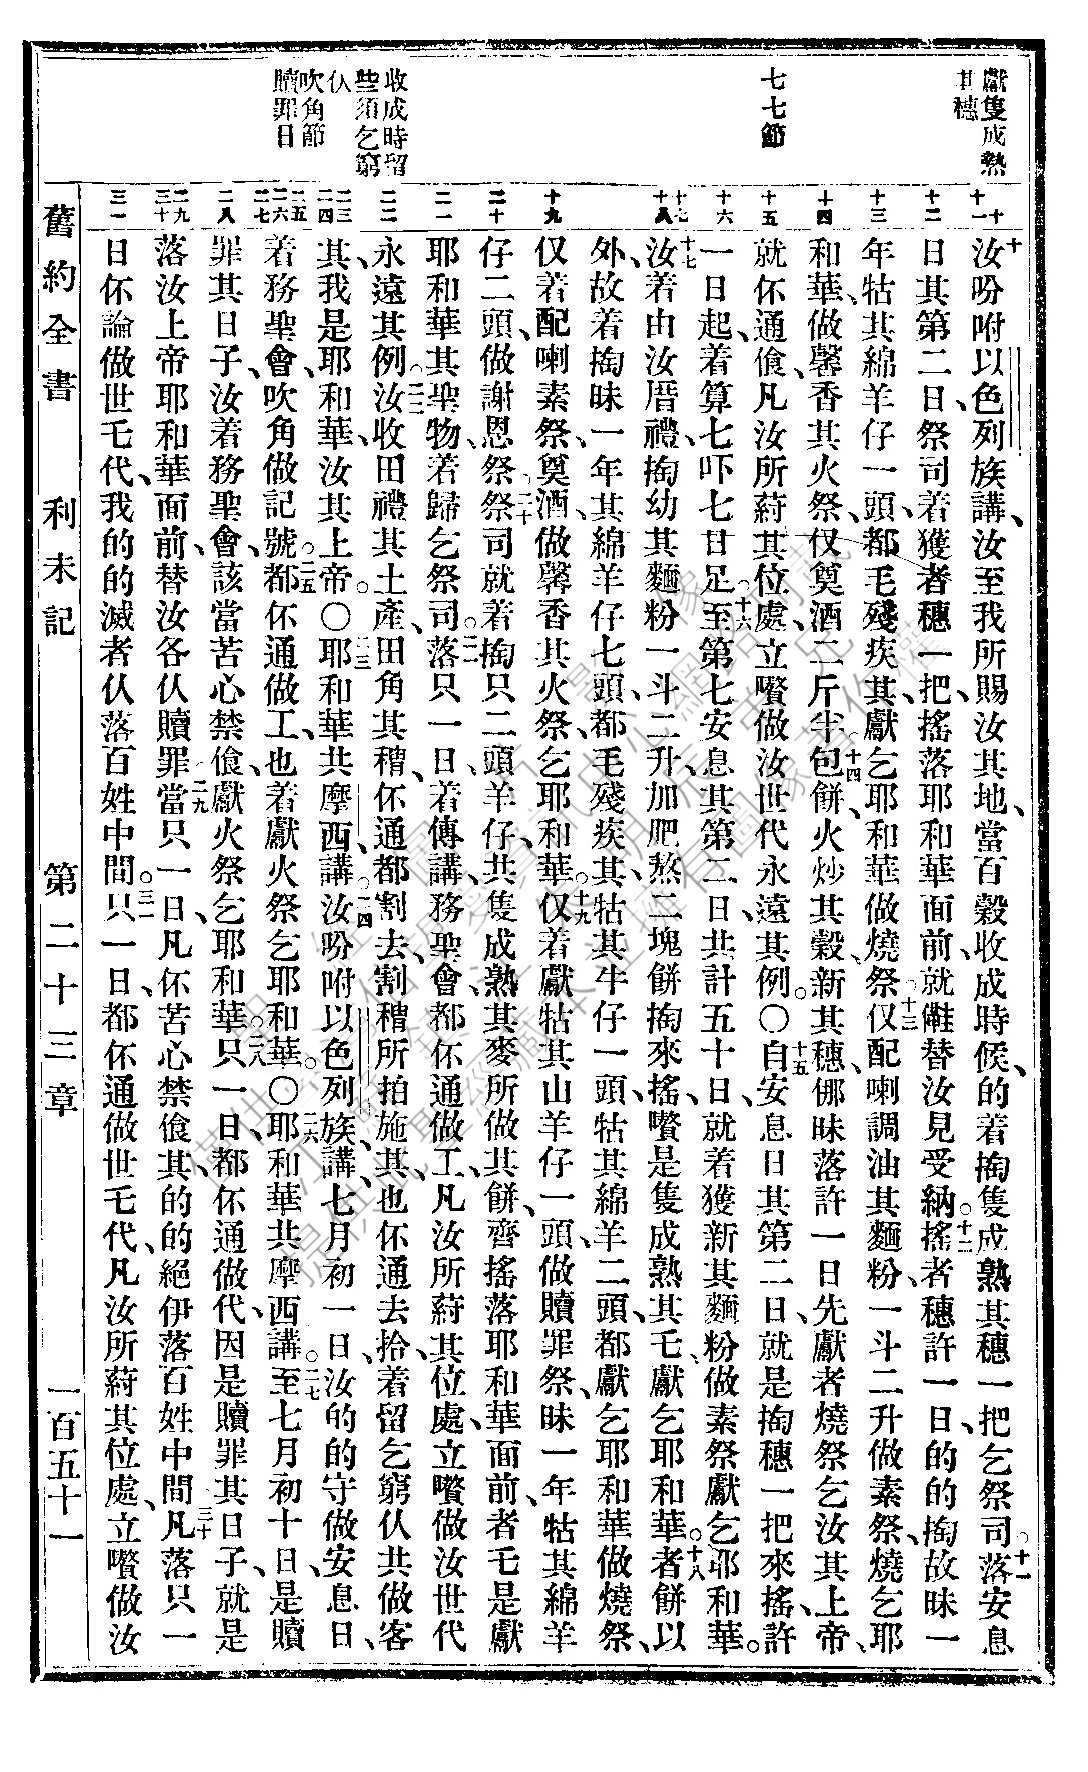 獻隻成熟
其穗
七七節
收成時留
些須乞窮
仈
吹角節
贖罪日
十
十一
十二
十三
十四
十五
十六
十七
十八
十九
二十
二一
二二
二三
二四
二五
二六
二七
二八
二九
三十
三一
十汝吩咐以色列族講、汝至我所賜汝其地、當百穀收成時候、的着掏隻成熟其穗一把乞祭司。十一落安息
日其第二日、祭司着獲者穗一把、搖落耶和華面前、就儺替汝見受納。十二搖者穗許一日、的的掏故昧一
年牯其綿羊仔一頭、都毛殘疾其、獻乞耶和華做燒祭。十三仅配喇調油其麵粉一斗二升做素祭、燒乞耶
和華、做馨香其火祭、仅奠酒二斤半。十四包餅、火炒其穀、新其穗、㑚昧落許一日先獻者燒祭乞汝其上帝、
就伓通飡、凡汝所蒔其位處、立嚽做汝世代永遠其例。〇十五自安息日其第二日、就是掏穗一把來搖、許
一日起、着算七吓七廿足。十六至第七安息其第二日、共計五十日、就着獲新其麵粉做素祭、獻乞耶和華。
十七汝着由汝厝禮、掏幼其麵粉一斗二升、加肥熬二塊餅掏來搖、嚽是隻成熟其乇、獻乞耶和華。十八者餅以
外、故着掏昧一年其綿羊仔七頭、都毛殘疾其、牯其牛仔一頭、牯其綿羊二頭、都獻乞耶和華做燒祭、
仅着配喇素祭、奠酒、做馨香其火祭、乞耶和華。十九仅着獻牯其山羊仔一頭、做贖罪祭、昧一年牯其綿羊
仔二頭、做謝恩祭。二十祭司就着掏只二頭羊仔、共隻成熟其麥所做其餅、齊搖落耶和華面前、者乇是獻
耶和華其聖物、着歸乞祭司。二一落只一日、着傳講、務聖會、都伓通做工、凡汝所蒔其位處、立嚽做汝世代
永遠其例。二二汝收田禮其土產、田角其䅹、伓通都割去、割䅹所拍施其、也伓通去拾、着留乞窮仈共做客
其、我是耶和華、汝其上帝。〇二三耶和華共摩西講。二四汝吩咐以色列族講、七月初一日、汝的的守做安息日、
着務聖會、吹角做記號。二五都伓通做工、也着獻火祭乞耶和華。〇二六耶和華共摩西講。二七至七月初十日、是贖
罪其日子、汝着務聖會、該當苦心禁飡、獻火祭乞耶和華。二八只一日、都伓通做代、因是贖罪其日子、就是
落汝上帝耶和華面前、替汝各仈贖罪。二九當只一日、凡伓苦心禁飡其、的的絕伊落百姓中間。三十凡落只一
日伓論做世乇代、我的的滅者仈落百姓中間。三一只一日都伓通做世乇代、凡汝所蒔其位處、立嚽做汝
舊約全書　利未記　第二十三章　一百五十一